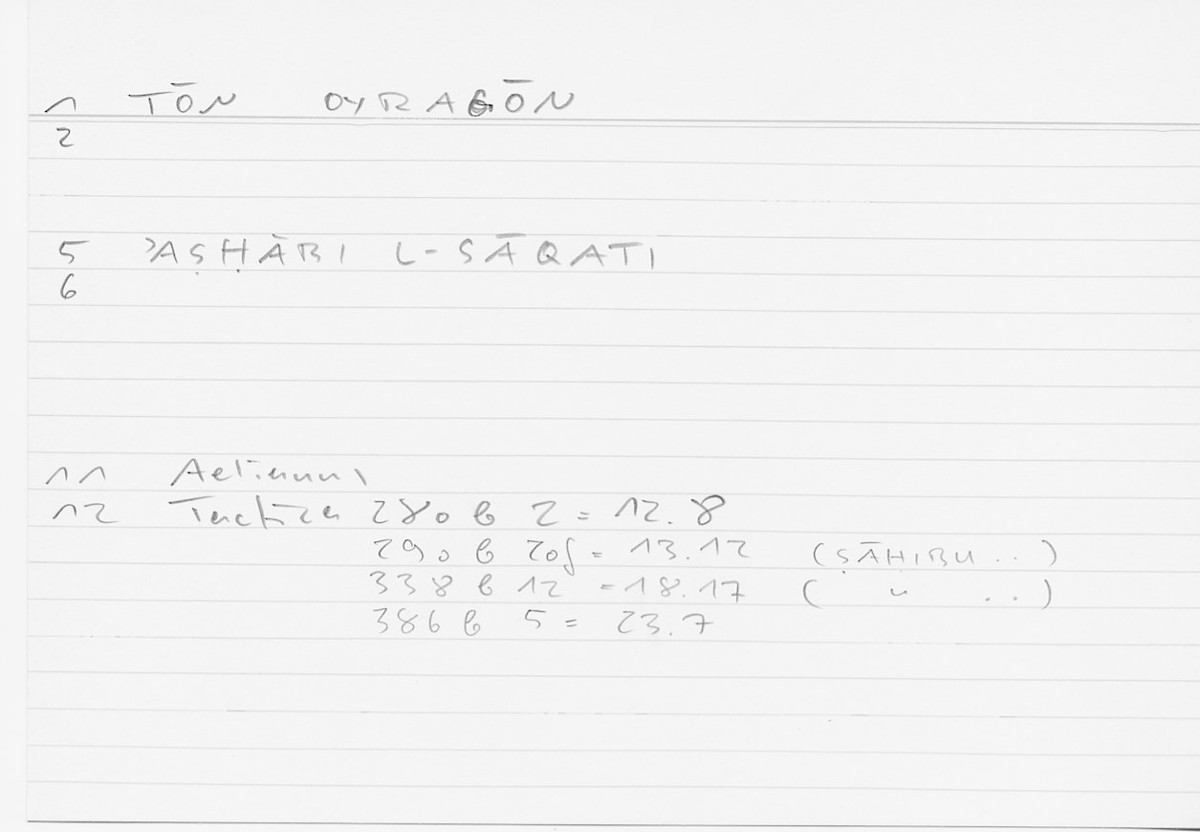 1 TŌN OYRAGŌN
2
5 ʾAṢḤĀBI L-SĀQATI
6
11 Aelianus
12 Tactica 280 b 2 = 12.8
290 b 20f = 13.12 (ṢĀḤIBU ..)
338 b 12 = 18.17 ( " ..)
386 b 5 = 23.7